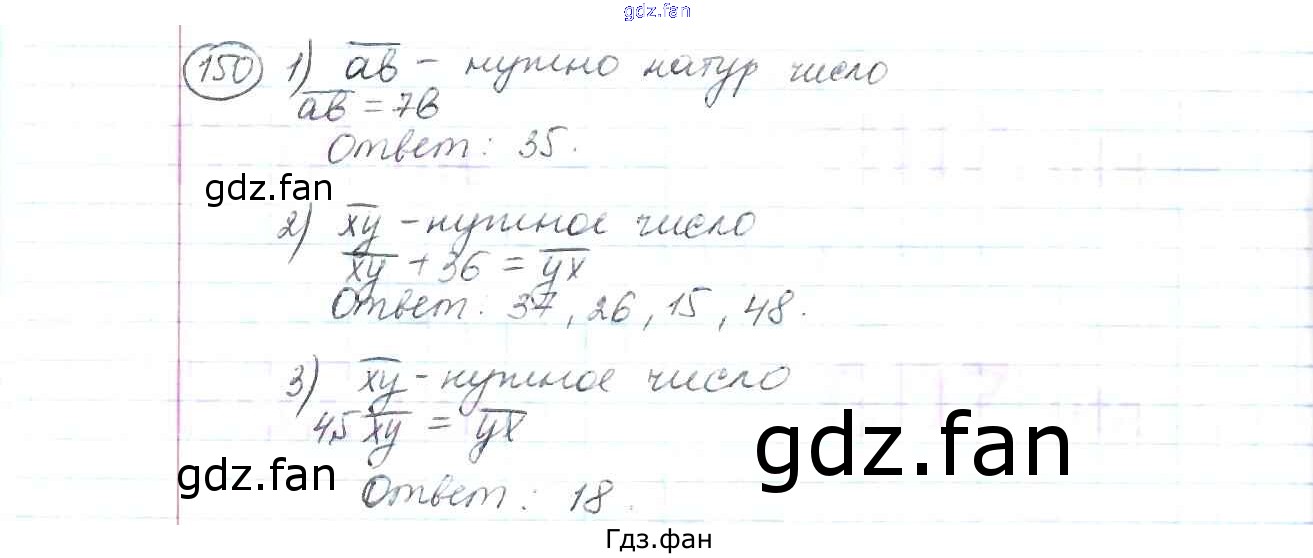 gdz.fan
150 1) ab – нужно натур число
ab = 7в
Ответ: 35.
gdz.fan
2) xy – нужное число
xy + 36 = yx
Ответ: 37, 26, 15, 48.
3) xy – нужное число
45 xy = yx
gdz.fan
gdz.fan
Ответ: 18.
Гдз.фан